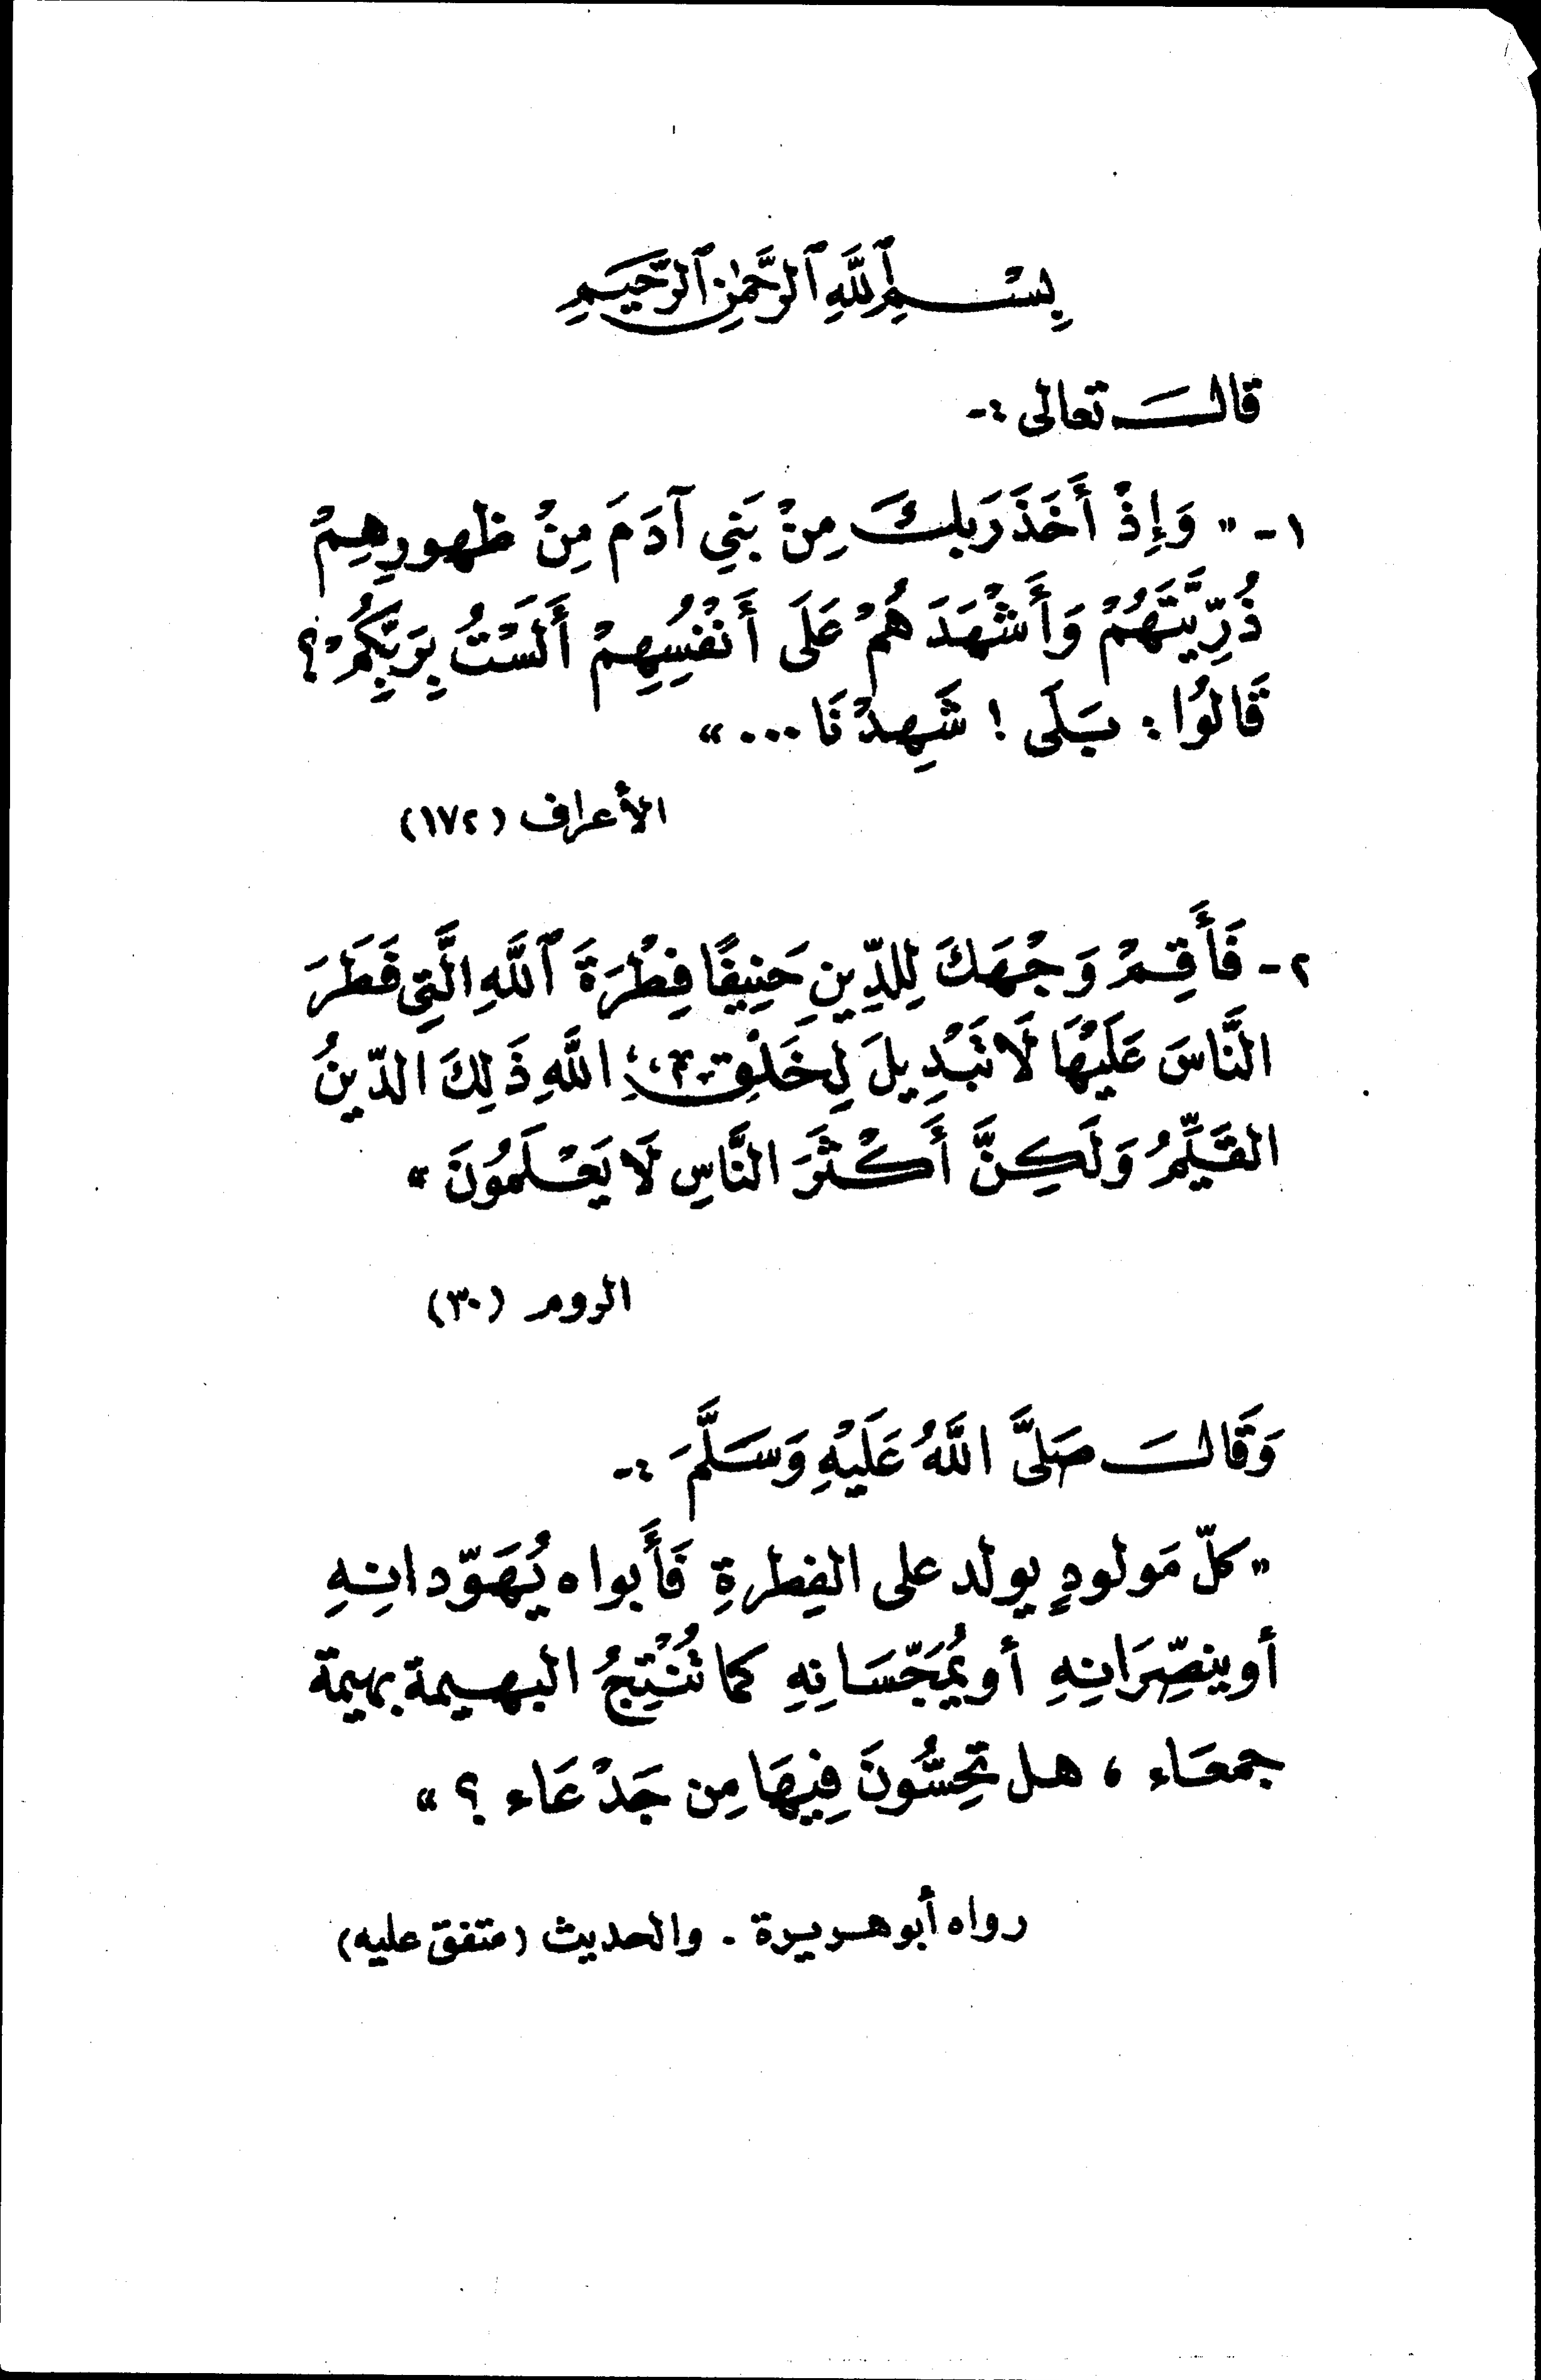 بِسْمِ ٱللَّهِ ٱلرَّحْمٰنِ ٱلرَّحِيمِ
قالَ تعالى :-
١- " وَإِذْ أَخَذَ رَبلكَ مِنْ بَنِي آدَمَ مِنْ ظهورِهِمْ
ذُرِّيَّتَهُمْ وَأَشْهَدَهُمْ عَلَى أَنْفُسِهِمْ أَلَسْتُ بِرَبِّكُمْ ؟
قَالوُا : بَلَى ! شَهِدْنَا ... "
الأعراف (١٧٢)
٢- فَأَقِمْ وَجْهَكَ لِلدِّينِ حَنِيفًا فِطْرَةَ ٱللَّهِ الَّتِي فَطَرَ
النَّاسَ عَلَيْهَا لَا تَبْدِيلَ لِخَلْقِ اللَّهِ ذَلِكَ الدّينُ
القَيِّمُ وَلَكِنَّ أَكْثَرَ النَّاسِ لَا يَعْلَمُونَ "
الروم (٣٠)
وَقَالَ صَلَّى اللَّهُ عَلَيْهِ وَسَلَّمَ :-
" كلّ مَولودٍ يولد على الفِطرةِ فَأَبواه يُهَوّدانِهِ
أو ينصِّرَانِهِ أو يُمَجّسَانِهِ كما تُنْتِجُ البهيمة بهيمة
جمعَاء ، هل تحِسُّونَ فِيهَا مِن جَدْعَاء ؟ "
رواه أبو هريرة . والحديث (متفق عليه)